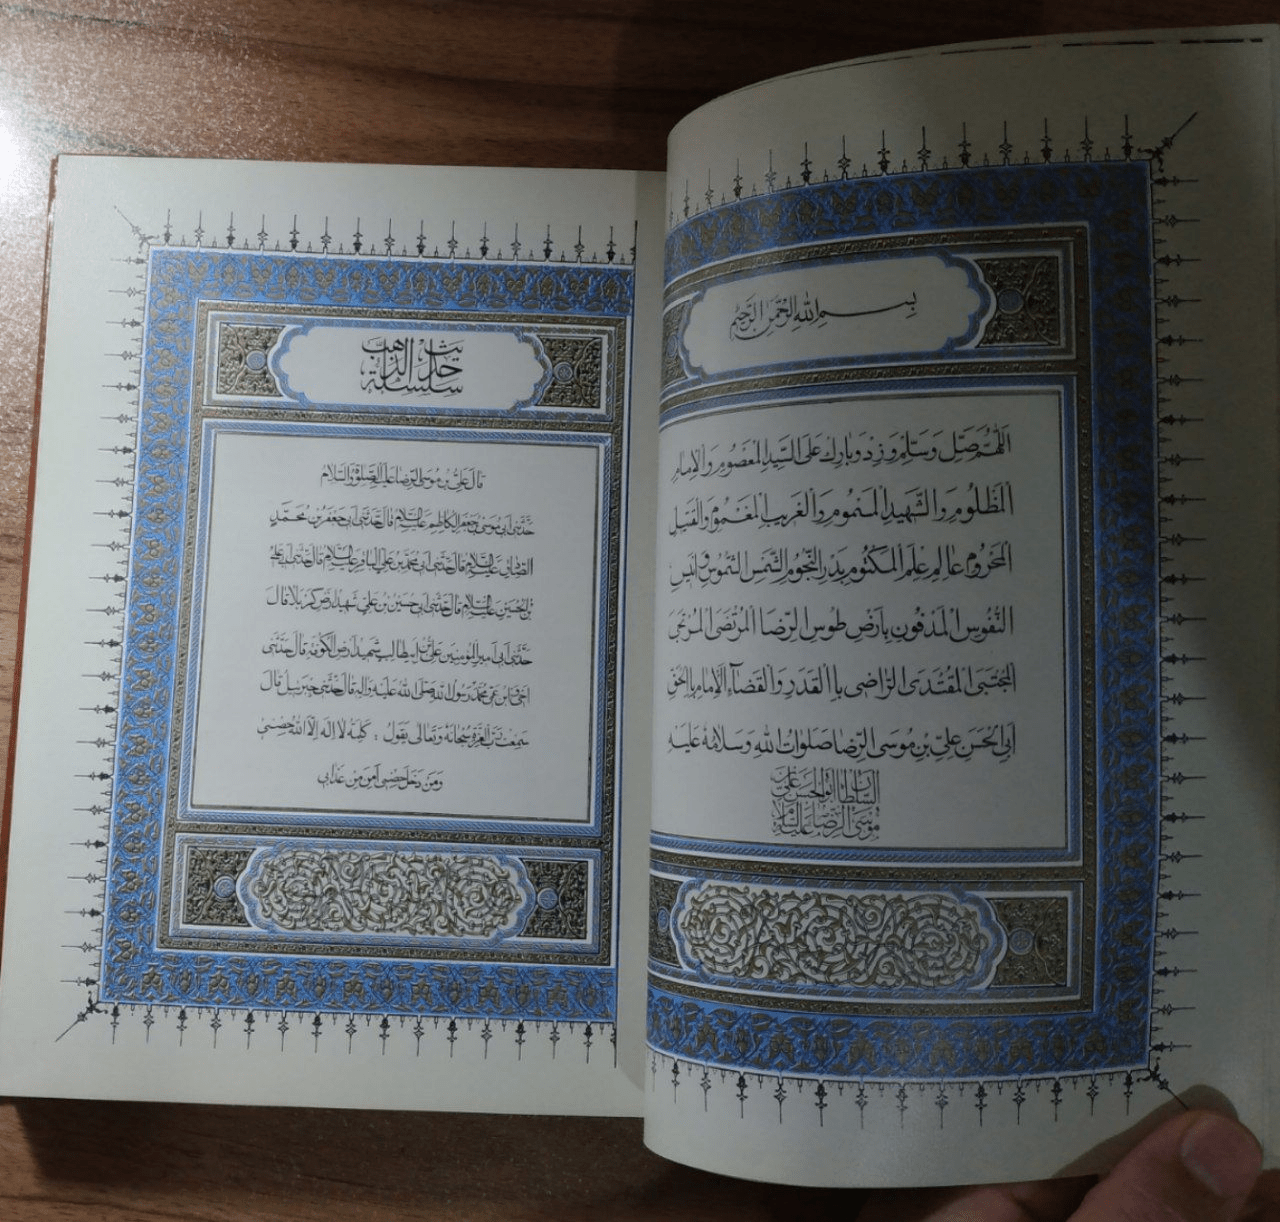 بسم الله الرحمن الرحيم
اللهم صل وسلم وزد وبارك على السيد المعصوم والامام
المظلوم والشهيد المسموم والغريب المغموم والقتيل
المحروم عالم علم المكتوم بدر النجوم الشمس الشموس وانيس
النفوس المدفون بارض طوس الرضا المرتضى المرتجى
المجتبى المقتدى الراضى باالقدر والقضاء الامام باالحق
ابى الحسن على بن موسى الرضا صلوات الله وسلامه عليه
السلطان ابو الحسن على بن
موسى الرضا عليه السلام
حديث سلسلة الذهب
قال على بن موسى الرضا عليه الصلوة والسلام
حدثنى ابى موسى بن جعفر الكاظم عليه السلام قال حدثنى ابى جعفر بن محمد
الصادق عليه السلام قال حدثنى ابى محمد بن على الباقر عليه السلام قال حدثنى ابى على
بن الحسين عليه السلام قال حدثنى ابى حسين بن على شهيد ارض كربلا قال
حدثنى ابى امير المومنين على بن ابيطالب شهيد ارض الكوفة قال حدثنى
اخى وابن عمى محمد رسول الله صلى الله عليه واله قال حدثنى جبرئيل قال
سمعت رب العزة سبحانه وتعالى يقول : كلمة لا اله الا الله حصنى
ومن دخل حصنى امن من عذابى